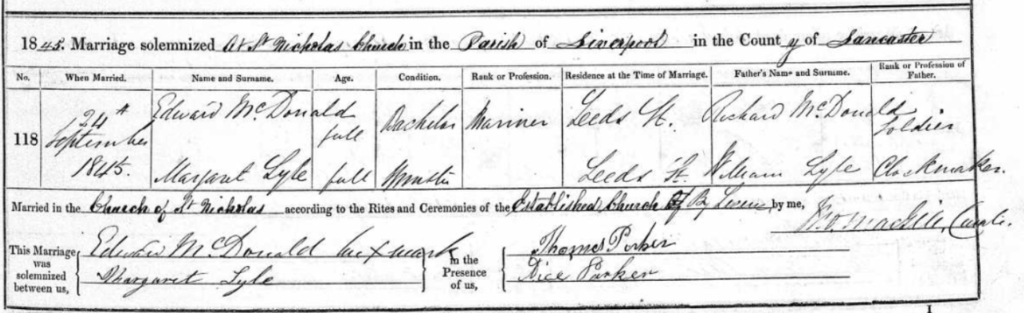 1845. Marriage solemnized At St Nicholas Church in the Parish of Liverpool in the County of Lancaster
No. When Married. Name and Surname. Age. Condition. Rank or Profession. Residence at the Time of Marriage. Father's Name and Surname. Rank or Profession of Father.
118 24th September 1845. Edward McDonald full Bachelor Mariner Leeds St. Richard McDonald Soldier
Margaret Lyle full Leeds St. William Lyle Clockmaker.
Married in the Church of St Nicholas according to the Rites and Ceremonies of the Established Church by me,
This Marriage was solemnized between us, Edward McDonald his x mark
Margaret Lyle
in the Presence of us, Thomas Parker
Rice Parker
1